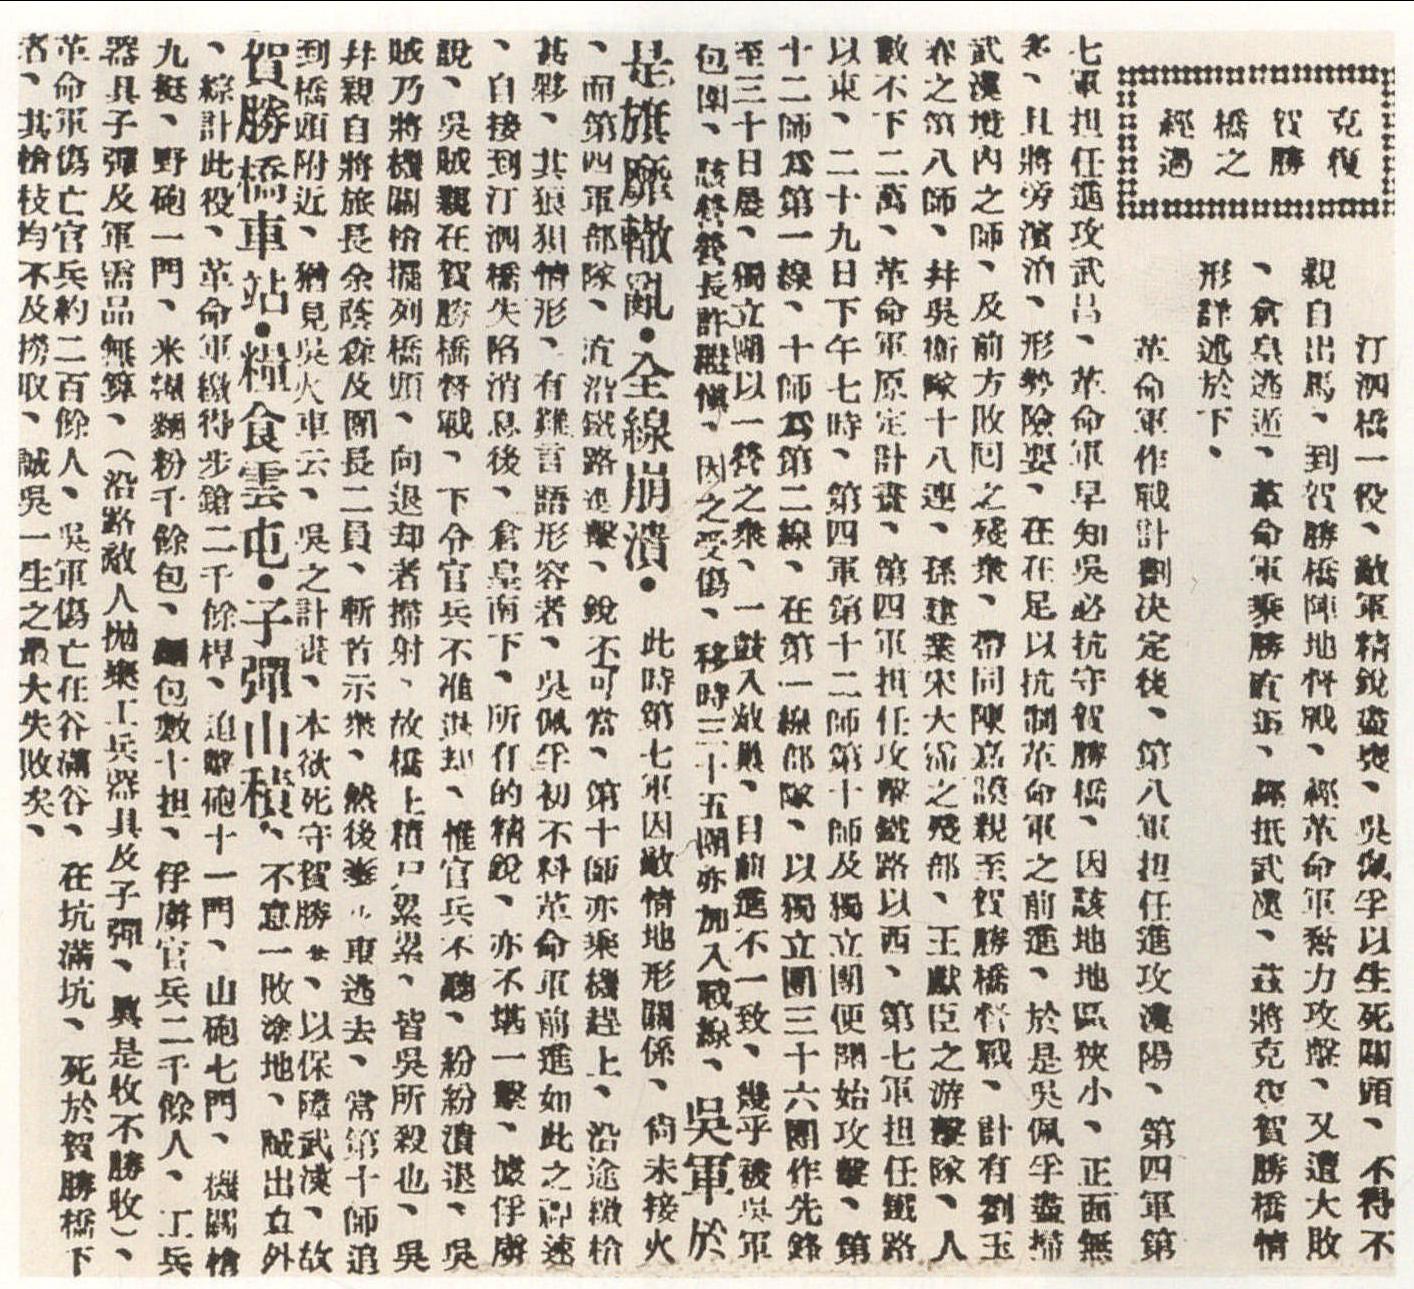 克復
賀勝
橋之
經過
汀泗橋一役、敵軍精銳盡喪、吳佩孚以生死關頭、不得不
親自出馬、到賀勝橋陣地督戰、經革命軍奮力攻擊、又遭大敗
、倉皇逃遁、革命軍乘勝直追、經抵武漢、茲將克復賀勝橋情
形詳述於下、
革命軍作戰計劃決定後、第八軍担任進攻漢陽、第四軍第
七軍担任進攻武昌、革命軍早知吳必抗守賀勝橋、因該地地區狹小、正面無
多、且將旁濱泊、形勢險要、在在足以抗制革命軍之前進、於是吳佩孚盡掃
武漢境內之師、及前方敗回之殘衆、帶同陳嘉謨親至賀勝橋督戰、計有劉玉
春之第八師、幷吳衛隊十八連、孫建業宋大霈之殘部、王獻臣之游擊隊、人
數不下二萬、革命軍原定計畫、第四軍担任攻擊鐵路以西、第七軍担任鐵路
以東、二十九日下午七時、第四軍第十二師第十師及獨立團便開始攻擊、第
十二師爲第一線、十師爲第二線、在第一線部隊、以獨立團三十六團作先鋒
至三十日晨、獨立團以一營之衆、一鼓入敵陣、日前進不一致、幾乎被吳軍
包圍、該營營長許繼愼、因之受傷、移時三十五團亦加入戰線、吳軍於
是旗靡轍亂・全線崩潰・此時第七軍因敵情地形關係、尙未接火
、而第四軍部隊、直沿鐵路進擊、銳不可當、第十師亦乘機趕上、沿途繳槍
甚夥、其狼狽情形、有難言語形容者、吳佩孚初不料革命軍前進如此之神速
、自接到汀泗橋失陷消息後、倉皇南下、所有的精銳、亦不堪一擊、據俘虜
說、吳賊親在賀勝橋督戰、下令官兵不准退却、惟官兵不聽、紛紛潰退、吳
賊乃將機關槍擺列橋頭、向退却者掃射、故橋上積尸累累、皆吳所殺也、吳
幷親自將旅長余蔭森及團長二員、斬首示衆、然後乘車逃去、當第十師追
到橋頭附近、猶見吳火車云、吳之計畫、本欲死守賀勝、以保障武漢、故
賀勝橋車站・糧食雲屯・子彈山積、不意一敗塗地、賊出意外
、綜計此役、革命軍繳得步鎗二千餘桿、迫擊砲十一門、山砲七門、機關槍
九挺、野砲一門、米糧麵粉千餘包、包數十担、俘虜官兵二千餘人、工兵
器具子彈及軍需品無算、（沿路敵人抛棄工兵器具及子彈、眞是收不勝收）、
革命軍傷亡官兵約二百餘人、吳軍傷亡在谷滿谷、在坑滿坑、死於賀勝橋下
者、其槍枝均不及撈取、誠吳一生之最大失敗矣、